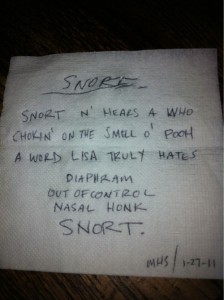 SNORE
SNORT N' HEARS A WHO
CHOKIN' ON THE SMELL O' POOH
A WORD LISA TRULY HATES
DIAPHRAM
OUT OF CONTROL
NASAL HONK
SNORT.
MHS/1-27-11